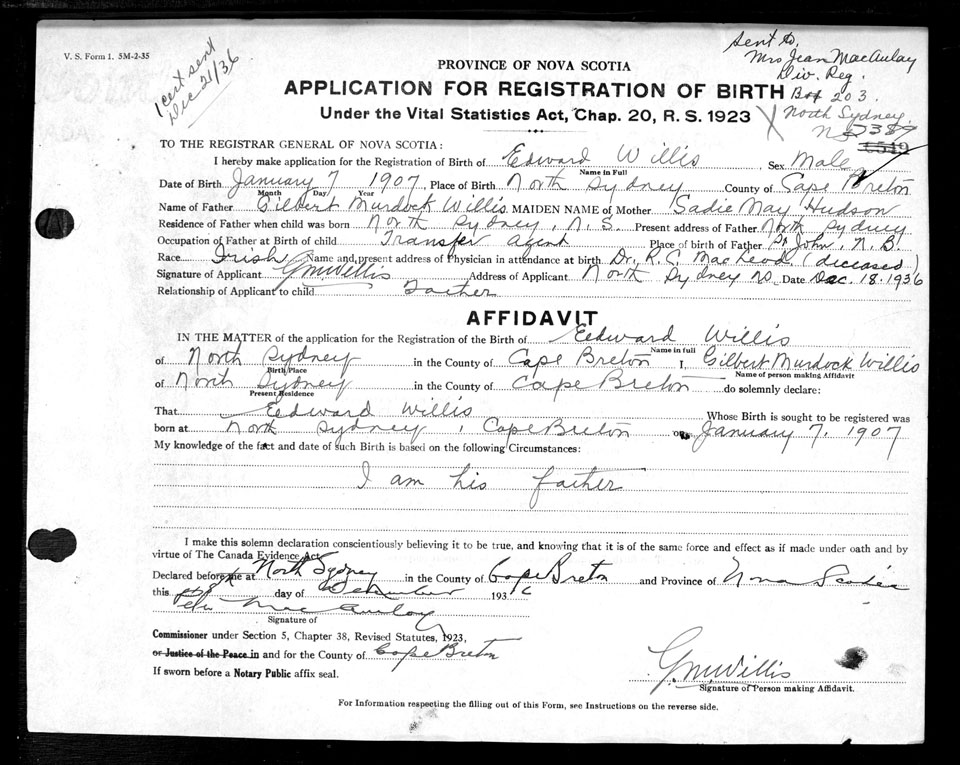 V. S. Form 1. 5M-2-35
1 cert sent
Dec 21/36
Sent to,
Mrs Jean MacAulay
Div. Reg.
Box 203
North Sydney,
N.S
PROVINCE OF NOVA SCOTIA
APPLICATION FOR REGISTRATION OF BIRTH
Under the Vital Statistics Act, Chap. 20, R. S. 1923
TO THE REGISTRAR GENERAL OF NOVA SCOTIA:
I hereby make application for the Registration of Birth of Edward Willis Sex Male
Name in Full
Date of Birth January 7 1907 Place of Birth North Sydney County of Cape Breton
Month Day Year
Name of Father Gilbert Murdock Willis MAIDEN NAME of Mother Sadie May Hudson
Residence of Father when child was born North Sydney, N. S. Present address of Father North Sydney
Occupation of Father at Birth of child Transfer Agent Place of birth of Father St John, N. B.
Race Irish Name and present address of Physician in attendance at birth Dr. R. C. MacLeod (diceased)
Signature of Applicant G M Willis Address of Applicant North Sydney NS Date Dec. 18. 1936
Relationship of Applicant to child Father
AFFIDAVIT
IN THE MATTER of the application for the Registration of the Birth of Eedward Willis
Name in full
of North Sydney in the County of Cape Breton I, Gilbert Murdock Willis
Birth Place Name of person making Affidavit
of North Sydney in the County of Cape Breton do solemnly declare:
Present Residence
That Eedward Willis Whose Birth is sought to be registered was
born at North Sydney, Cape Breton on January 7, 1907
My knowledge of the fact and date of such Birth is based on the following Circumstances:
I am his father
I make this solemn declaration conscientiously believing it to be true, and knowing that it is of the same force and effect as if made under oath and by
virtue of The Canada Evidence Act.
Declared before me at North Sydney in the County of Cape Breton and Province of Nova Scotia
this day of December 1936
MacAulay
Signature of
Commissioner under Section 5, Chapter 38, Revised Statutes, 1923,
or Justice of the Peace in and for the County of Cape Breton
If sworn before a Notary Public affix seal.
G M Willis
Signature of Person making Affidavit.
For Information respecting the filling out of this Form, see Instructions on the reverse side.